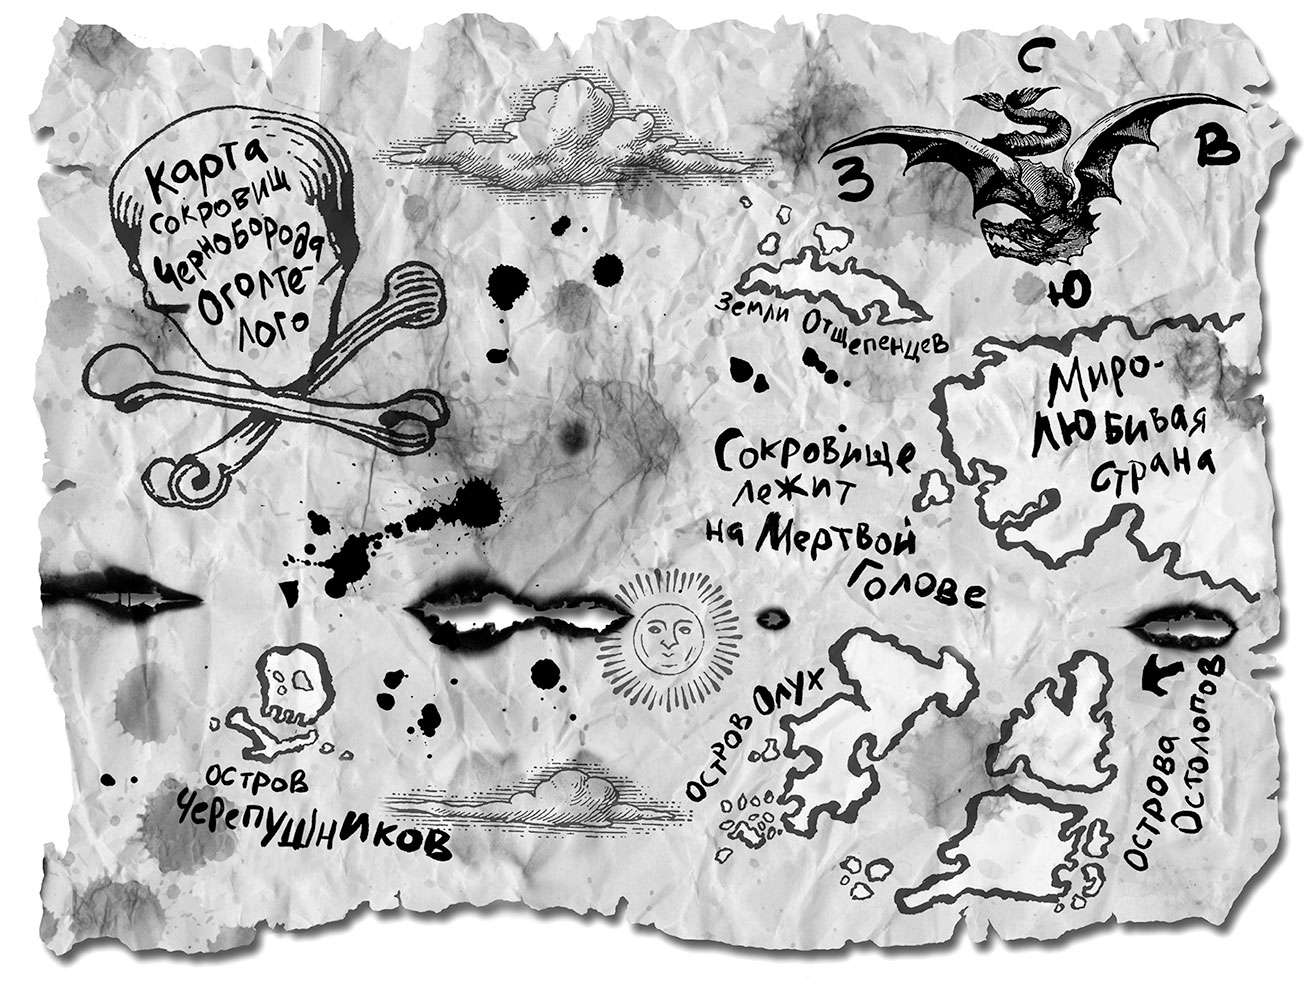 Карта
сокровищ
Чернобородa
Оголте-
лого
С
З
В
Ю
Земли Отщепенцев
Миро-
любивая
страна
Сокровище
лежит
на Мертвой
Голове
остров Олух
Острова
Остолопов
остров
Черепушников